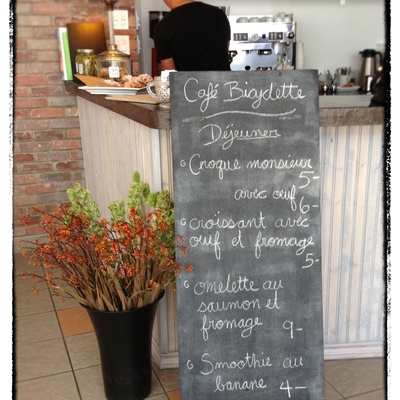 Café Bicyclette
Déjeuner
Croque monsieur
5-
avec oeuf
6-
croissant avec
oeuf et fromage
5-
omelette au
saumon et
fromage 9-
Smoothie au
banane 4-